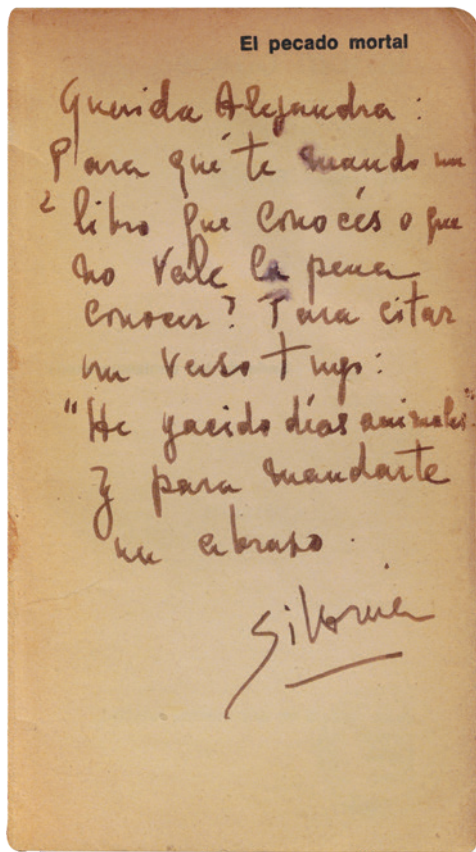 El pecado mortal
Querida Alejandra :
Para qué te mando un
¿ libro que conocés o que
no vale la pena
conocer? Para citar
un verso tuyo :
"He yacido días animales".
y para mandarte
un abrazo .
Silvina